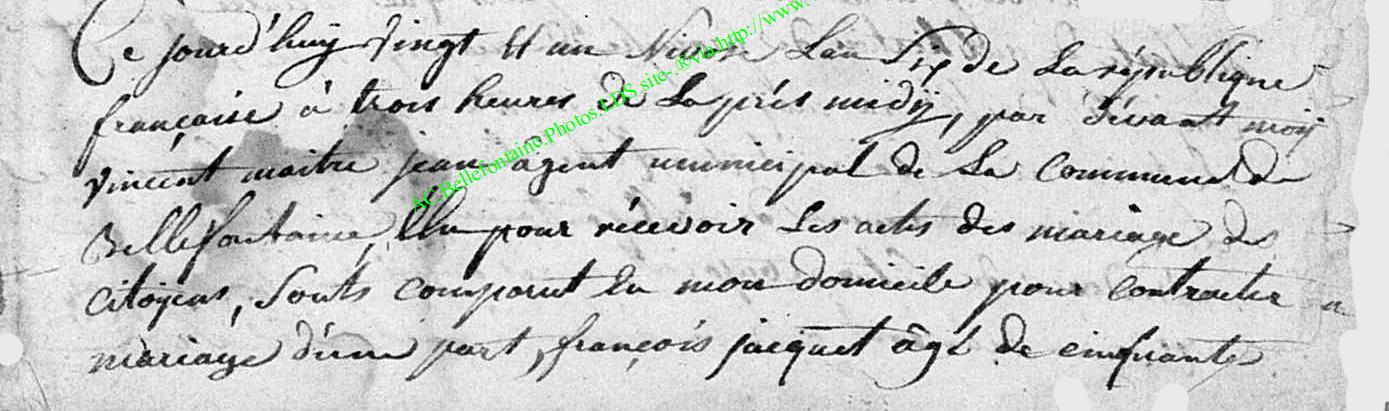 Ce jourd'huy vingt et un Nivose Lan Six de La république
française à trois heures de La prés midÿ, par dévant moÿ
vincent maitre jean agent municipal de La Commune de
Bellefontaine, Elu pour récevoir Les actes des mariage des
citoÿens, Sonts comparut En mon domicile pour contracter
mariage d'une part, françois jacquet âgé de cinquante
AC.Bellefontaine.Photos.LDS site-.®via http://www.